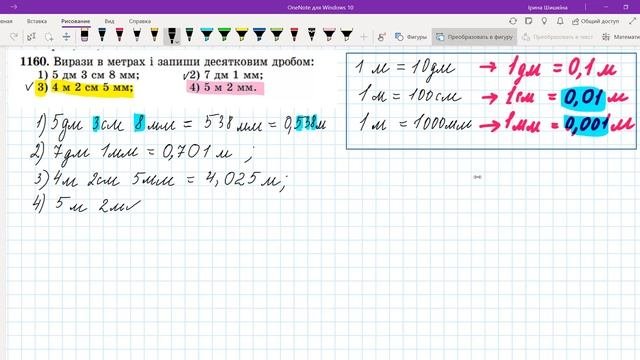 OneNote для Windows 10
Ірина Шишкіна
Рисование
Общий доступ
Фигуры
Преобразовать в фигуру
Математика
1160. Вирази в метрах і запиши десятковим дробом:
1) 5 дм 3 см 8 мм; ✓2) 7 дм 1 мм;
✓ 3) 4 м 2 см 5 мм; 4) 5 м 2 мм.
1 м = 10дм → 1дм = 0,1 м
1 м = 100см → 1см = 0,01 м
1 м = 1000мм → 1мм = 0,001 м
1) 5дм 3см 8мм = 538мм = 0,538м
2) 7дм 1мм = 0,701 м ;
3) 4м 2см 5мм = 4,025 м;
4) 5 м 2м